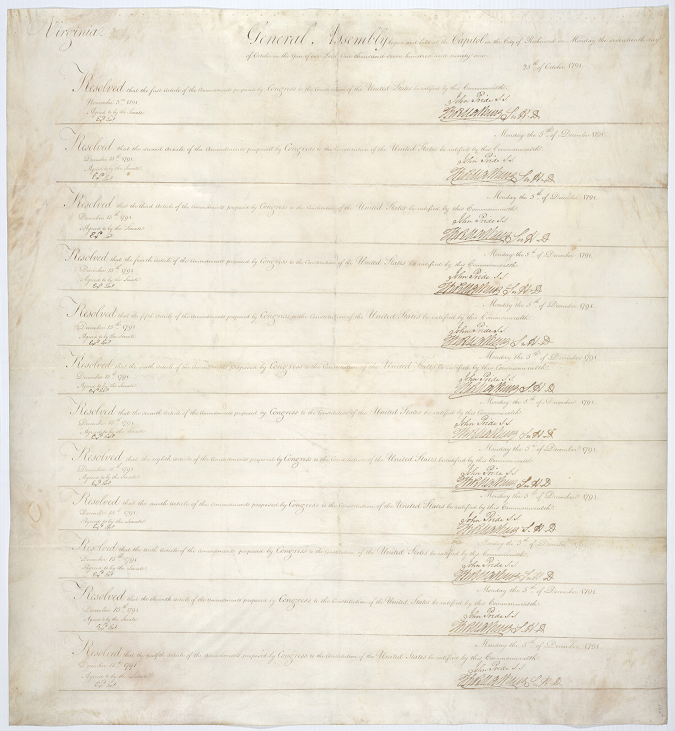 Virginia
General Assembly begun and held at the Capitol in the City of Richmond on Monday the seventeenth day
of October in the Year of our Lord One thousand seven hundred and ninety one.
25th of October 1791.
Resolved that the first Article of the Amendments proposed by Congress to the Constitution of the United States be ratified by this Commonwealth.
November 3rd 1791. John Pride S.S.
Agreed to by the Senate S.H.D.
Monday the 5th of December 1791.
Resolved that the second Article of the Amendments proposed by Congress to the Constitution of the United States be ratified by this Commonwealth.
December 15th 1791. John Pride S.S.
Agreed to by the Senate S.H.D.
Monday the 5th of December 1791.
Resolved that the third Article of the Amendments proposed by Congress to the Constitution of the United States be ratified by this Commonwealth.
December 15th 1791. John Pride S.S.
Agreed to by the Senate S.H.D.
Monday the 5th of December 1791.
Resolved that the fourth Article of the Amendments proposed by Congress to the Constitution of the United States be ratified by this Commonwealth.
December 15th 1791. John Pride S.S.
Agreed to by the Senate S.H.D.
Monday the 5th of December 1791.
Resolved that the fifth Article of the Amendments proposed by Congress to the Constitution of the United States be ratified by this Commonwealth.
December 15th 1791. John Pride S.S.
Agreed to by the Senate S.H.D.
Monday the 5th of December 1791.
Resolved that the sixth Article of the Amendments proposed by Congress to the Constitution of the United States be ratified by this Commonwealth.
December 15th 1791. John Pride S.S.
Agreed to by the Senate S.H.D.
Monday the 5th of December 1791.
Resolved that the seventh Article of the Amendments proposed by Congress to the Constitution of the United States be ratified by this Commonwealth.
December 15th 1791. John Pride S.S.
Agreed to by the Senate S.H.D.
Monday the 5th of December 1791.
Resolved that the eighth Article of the Amendments proposed by Congress to the Constitution of the United States be ratified by this Commonwealth.
December 15th 1791. John Pride S.S.
Agreed to by the Senate S.H.D.
Monday the 5th of December 1791.
Resolved that the ninth Article of the Amendments proposed by Congress to the Constitution of the United States be ratified by this Commonwealth.
December 15th 1791. John Pride S.S.
Agreed to by the Senate S.H.D.
Monday the 5th of December 1791.
Resolved that the tenth Article of the Amendments proposed by Congress to the Constitution of the United States be ratified by this Commonwealth.
December 15th 1791. John Pride S.S.
Agreed to by the Senate S.H.D.
Monday the 5th of December 1791.
Resolved that the eleventh Article of the Amendments proposed by Congress to the Constitution of the United States be ratified by this Commonwealth.
December 15th 1791. John Pride S.S.
Agreed to by the Senate S.H.D.
Monday the 5th of December 1791.
Resolved that the twelfth Article of the Amendments proposed by Congress to the Constitution of the United States be ratified by this Commonwealth.
December 15th 1791. John Pride S.S.
Agreed to by the Senate S.H.D.